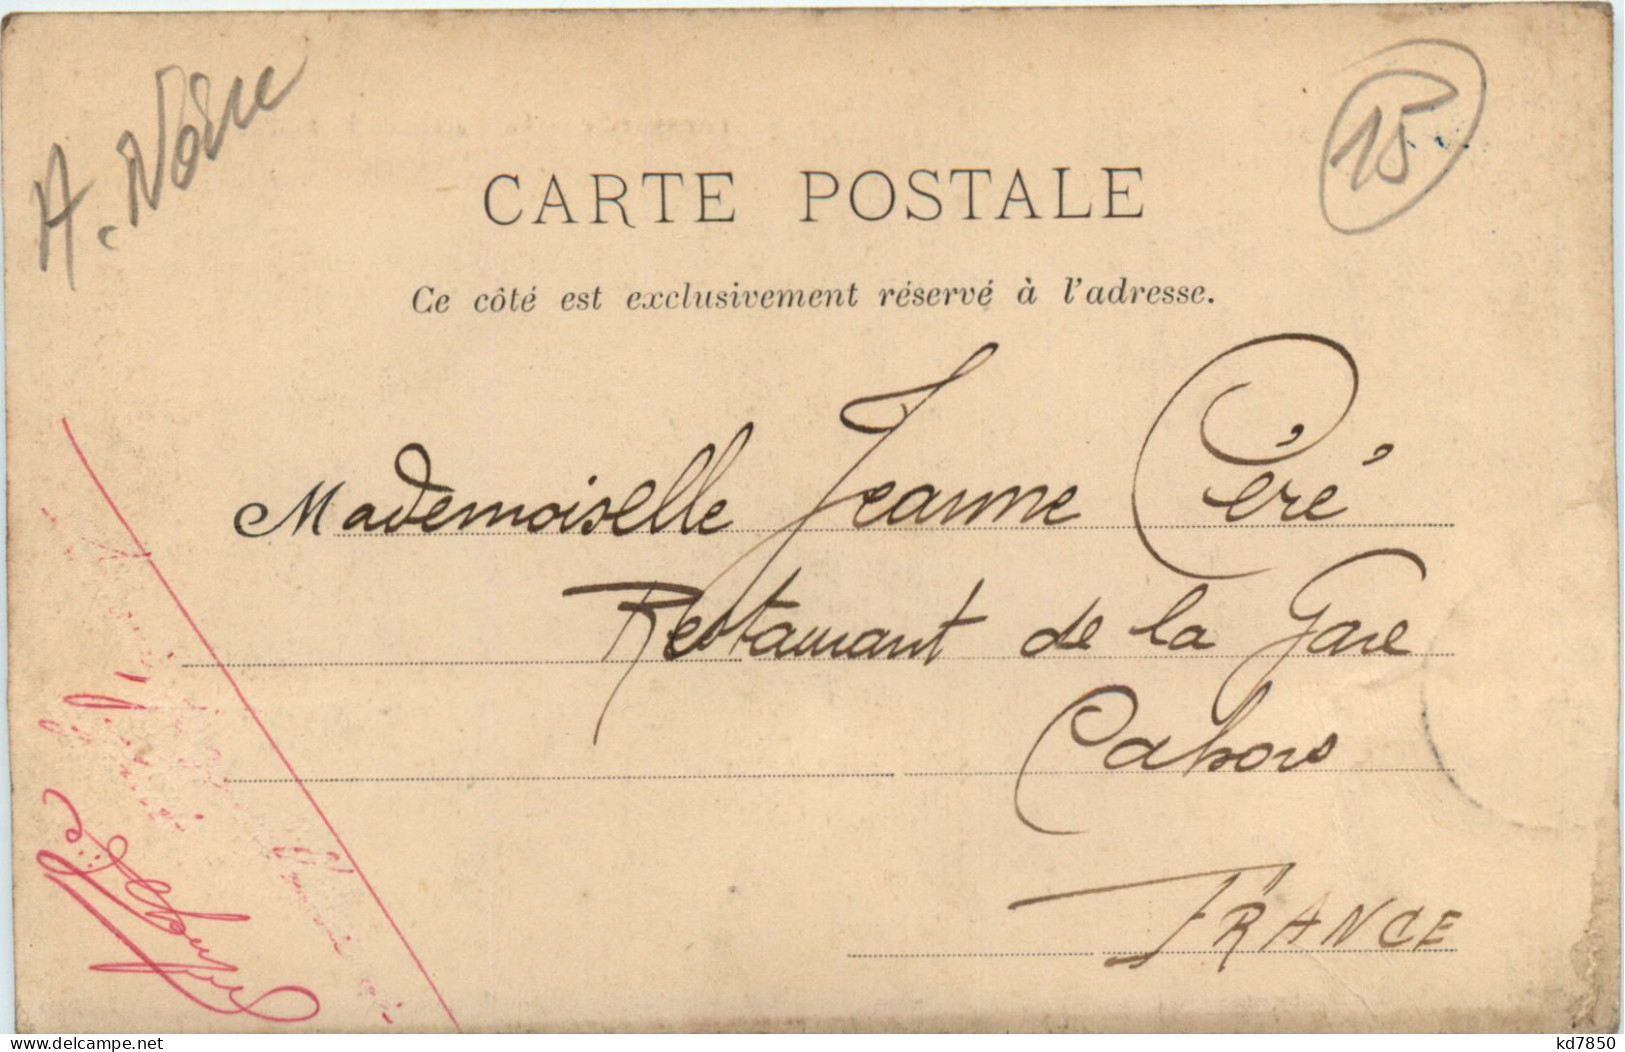 A. Noire
15
CARTE POSTALE
Ce côté est exclusivement réservé à l'adresse.
Mademoiselle Jeanne Céré
Restaurant de la Gare
Cahors
FRANCE
kd7850